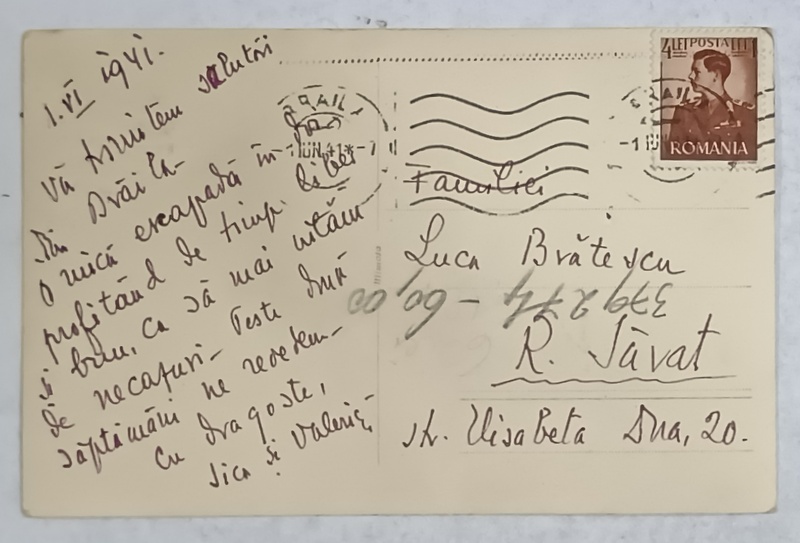 1.VI 1941.
Vă trimitem salutări
din Brăila
O mică escapadă în
profitând de timp liber
și bun, ca să mai uităm
de necazuri. Peste două
săptămâni ne revedem
cu dragoste,
Sica și Valerică
BRAILA
-1 IUN. 41 *-7
4 LEI POSTA LEI 4
ROMANIA
BRAILA
-1 IUN
Familiei
Luca Brătescu
379274 - 60,00
R. Sărat
str. Elisabeta Dna, 20.